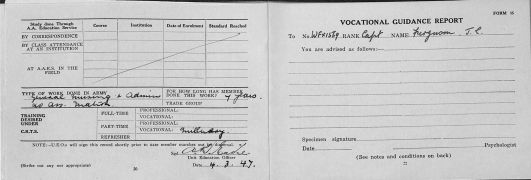 Study done Through
A.A. Education Service
Course
Institution
Date of Enrolment
Standard Reached
BY CORRESPONDENCE
BY CLASS ATTENDANCE
AT AN INSTITUTION
AT A.A.E.S. IN THE
FIELD
TYPE OF WORK DONE IN ARMY
General Nursing & Admin
as Ass. Matron
FOR HOW LONG HAS MEMBER
DONE THIS WORK? 4 years.
TRADE GROUP
TRAINING
DESIRED
UNDER
C.R.T.S.
FULL-TIME
PROFESSIONAL:
VOCATIONAL:
PART-TIME
PROFESSIONAL:
VOCATIONAL: Millinery.
REFRESHER
NOTE:—U.E.Os will sign this record shortly prior to date member marches out
Unit Education Officer
(Strike out any not appropriate)
Date 4.3.47.
20
FORM 16
VOCATIONAL GUIDANCE REPORT
To No. WFX1589 RANK Capt NAME Ferguson J.C.
You are advised as follows:—
Specimen signature
Date
Psychologist
(See notes and conditions on back)
21